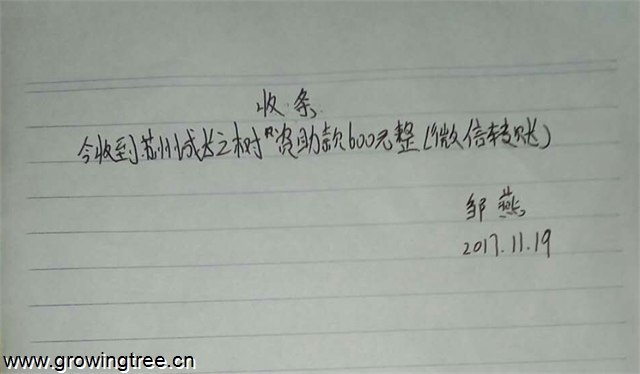 收条
今收到苏州成长之树"资助款600元整(微信转账)
邹燕
2017.11.19
www.growingtree.cn